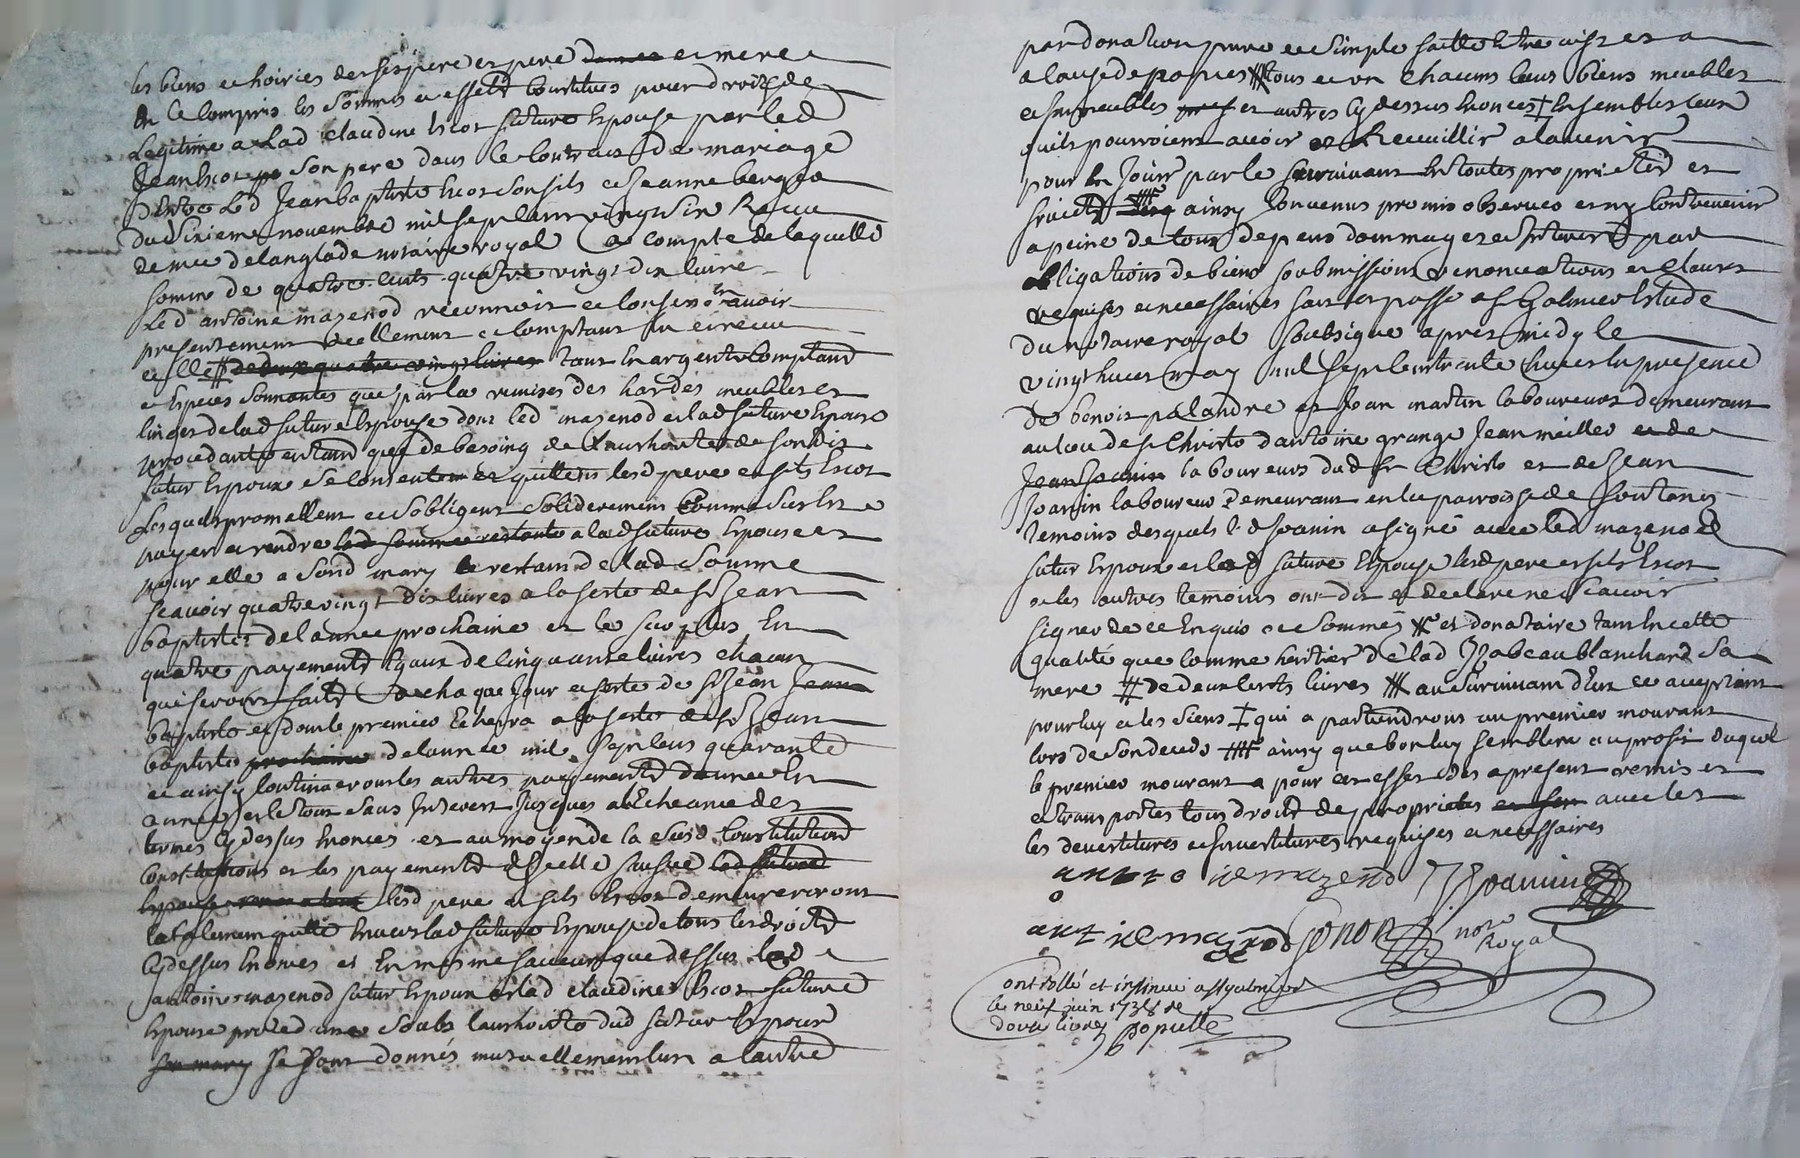 les biens et hoiries de ses pere et pere et mere
en ce compris les sommes et effets constitues pour droits de
Legitime a Lad claudine Escot future Epouse par led
Jean Escot son pere dans le contrait de mariage
D'entre Led Jean baptiste Escot son fils et Jeanne berger
du sixieme novembre mil sept cent vingt six Receu
de me delanglade notaire royal a compte de laquelle
somme de quatre cents quatre vingt dix livre
Led antoine mazenod reconnoit et confesse avoir
presentement reellement et comptant eu et receu
et elle # de deux quatre vingt livres tant en argent comptant
et Especes sonnantes que par la remises des hardes meubles et
linges de lad future Epouse dont led mazenod et lad future Epouse
procedante en tant que de besoing de l'authorité de son dit
futur Epoux se contentent et quittent lesd pere et fils Escot
Lesquels promettent et s'obligent solidairement comme dessus
payer et rendre led somme restante a lad future Epouse et
pour elle a sond mary le restant de lad somme
scavoir quatre vingt dix livres a la feste de St Jean
baptiste de lannee prochaine et le surplus En
quatre payements Egaux de cinquante livres chacun
qui seront faits a chaque jour et feste de St Jean
baptiste et dont le premier Echerra a la feste de St Jean
baptiste prochaine de lannee mil sept cens quarante
et ainsy continueront les autres payements dannee En
annee et le tout sans Interest jusques a lEcheance des
termes cy dessus Enonces et au moyen de la susd constitution
constitutions et les payements d'Icelle
lesd pere et fils Escot demeureront
totalement quitte Envers lad future Epouse de tous les droits
cy dessus Enonces et En mesme faveur que dessus led
antoine mazenod futur Epoux et lad claudine Escot future
Epouse procedante soubs l'authorité dud futur Epoux
son mary se sont donnés mutuellement lun a lautre
par donation pure et simple faitte Entre
a cause de tous et un chacuns leurs biens meubles
et Immeubles et autres cy dessus Enonces Ensembles ceux
quils pourroient avoir et Recueillir a lavenir
pour En Jouir par le survivant En toutes proprietés et
fruicts ainsy Convenus promis observer et ny Contrevenir
a peine de tous depens dommages et Interests par
obligations de biens soubmissions renonciations et clauses
requises et necessaires fait et passé a St Galmier Estude
du notaire royal soubsigné apres midy le
vingt huict may mil sept cent trente huict En presence
de benoit palandre et Jean martin laboureurs demeurant
au lieu de St Christo d'antoine grange Jean meiller et de
Jean Joanin laboureurs dud St Christo et de Jean
Joanin laboureur demeurant en la parroisse de fontanes
temoins desquels led Joanin a signé avec led mazenod
futur Epoux et lad future Epouse lesd pere et fils Escot
et les autres temoins ont dit et declaré ne scavoir
signer de ce Enquis et sommés et donataire tant En cette
qualité que comme heritier de lad Izabeau blanchard sa
mere # de deux cents livres au survivant d'Eux ce acceptant
pour luy et les siens qui apartiendront au premier mourant
lors de son deceds ainsy que bon luy semblera au profit duquel
le premier mourant a pour cet effet des a present remis et
et transportes tous droits de proprietes avec les
les devestitures et Investitures requises et necessaires
antoine mazenod J Joanin
ant ne mazenod Gonon
no.re
Royal
Controllé et insinué a St galmier
le neuf juin 1738 Re
douze livres
Ponulle